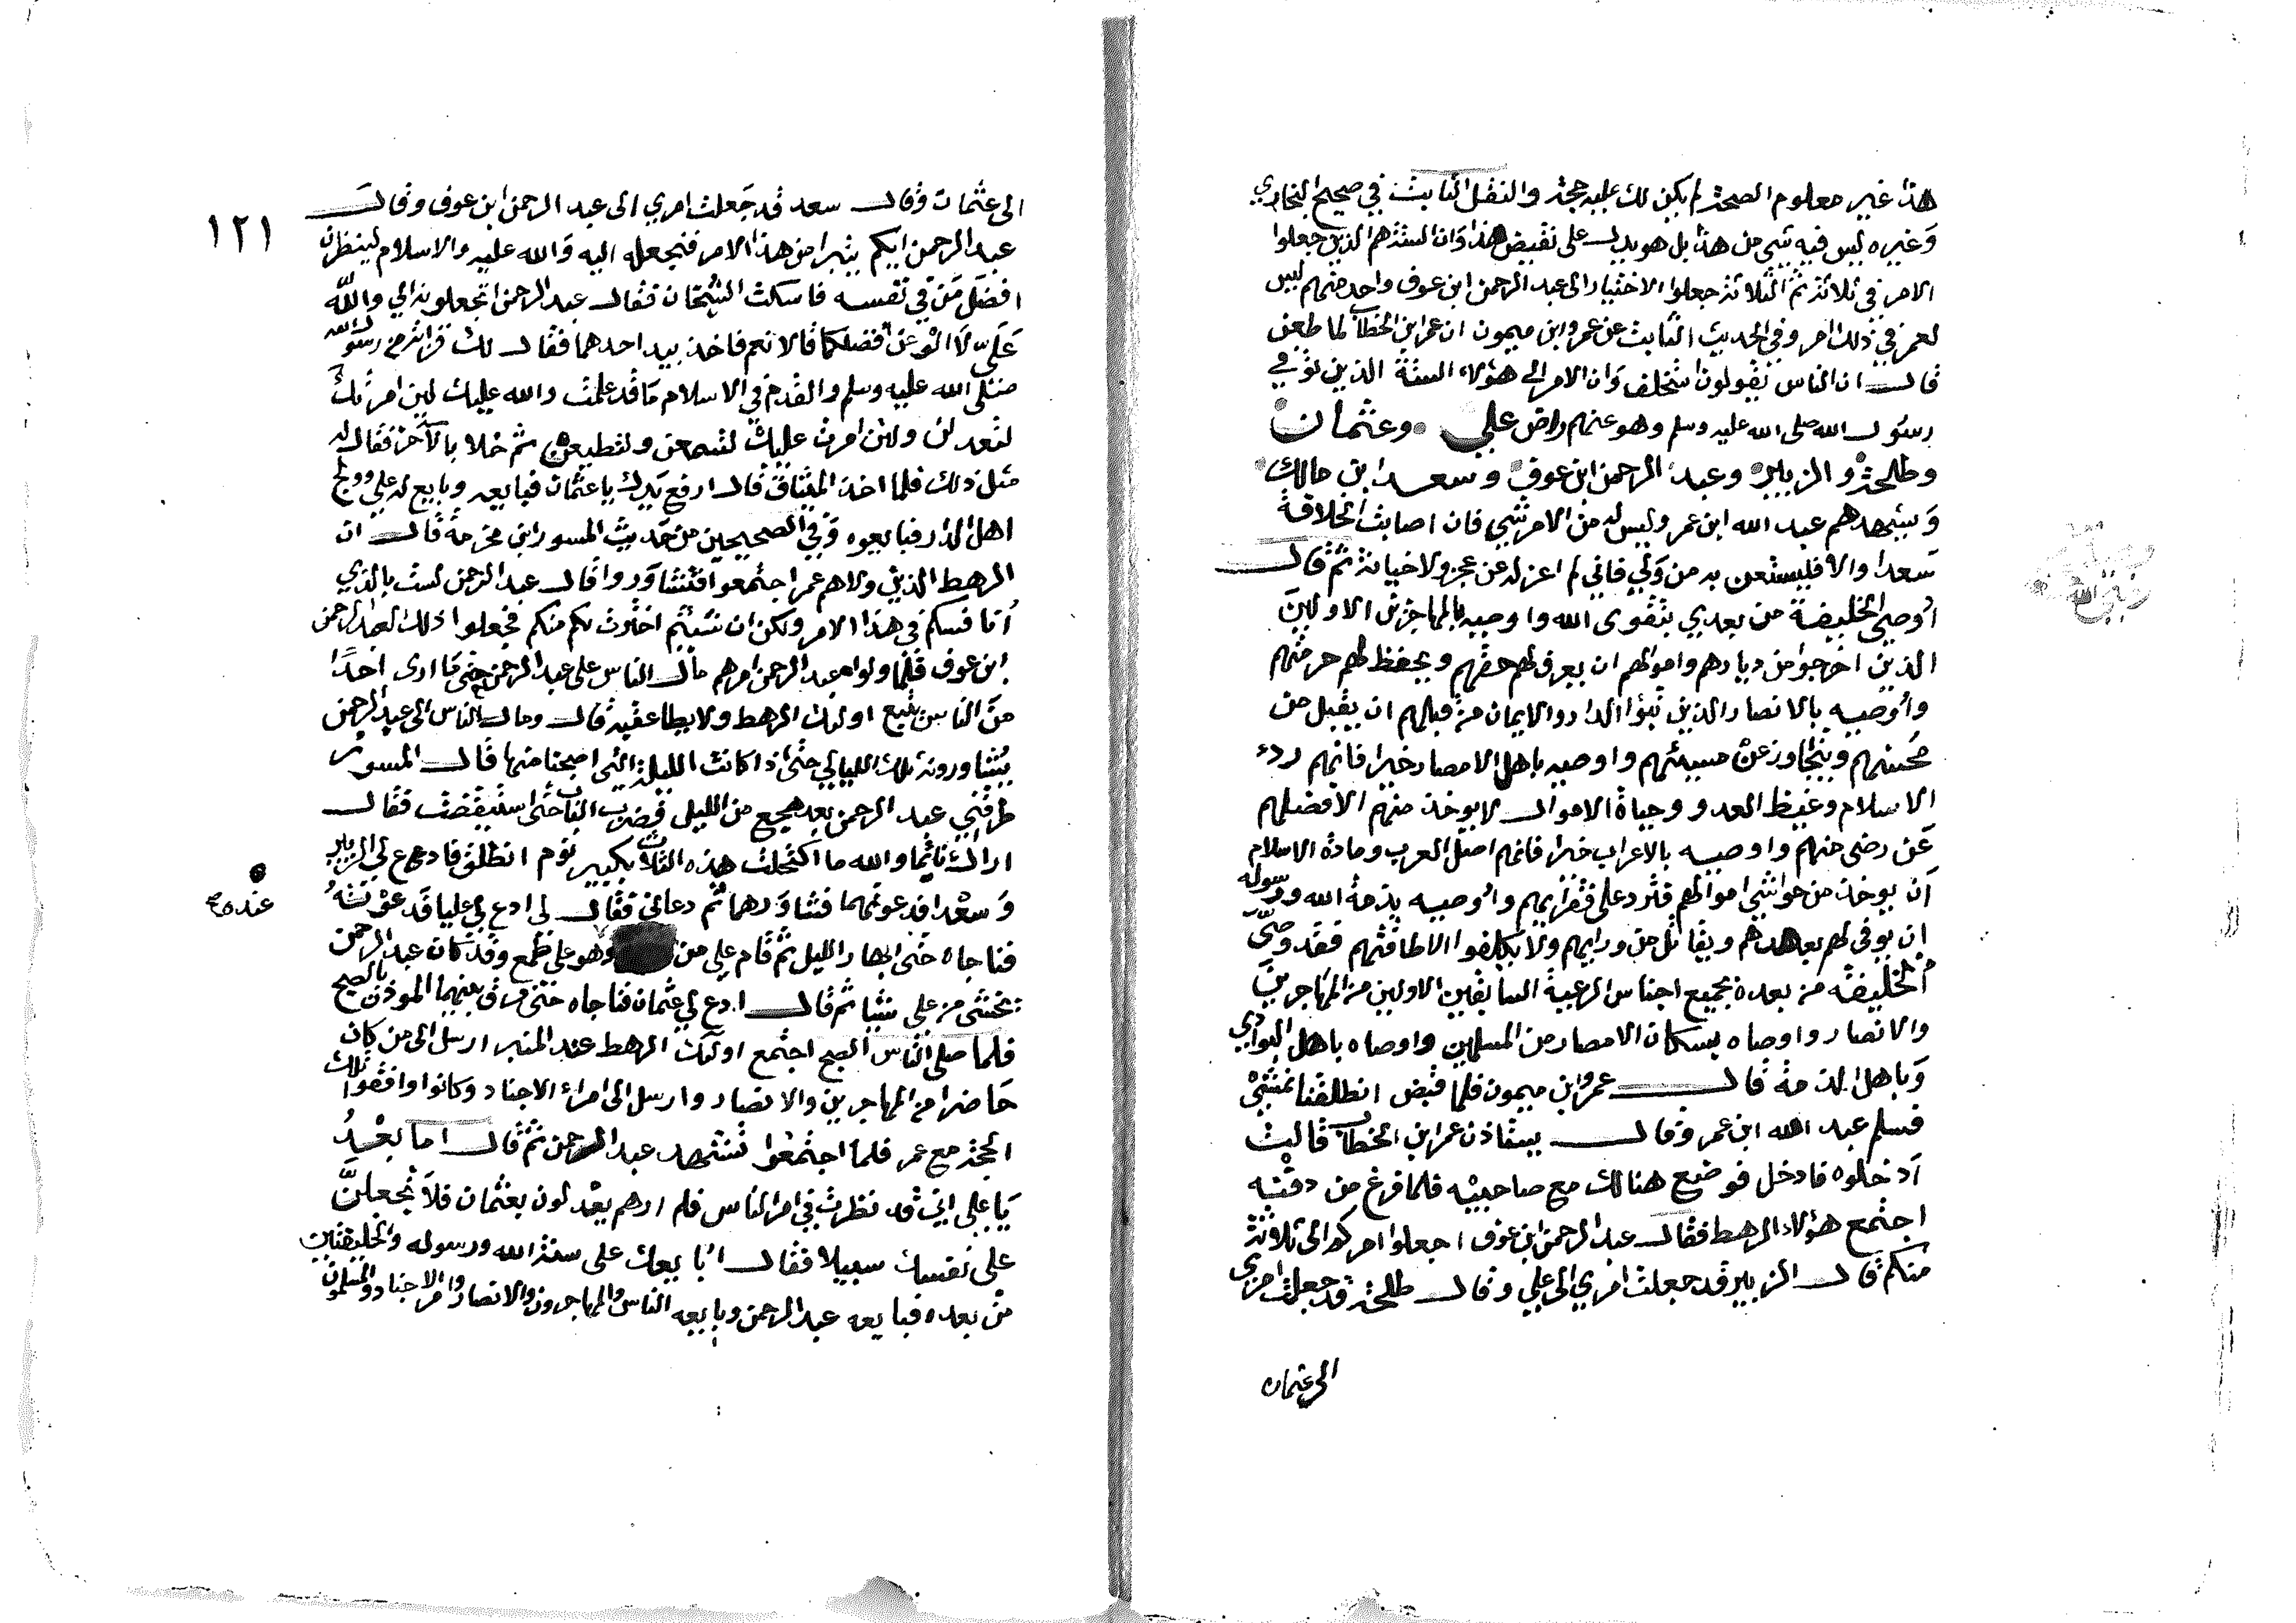 هذا غير معلوم الصحة لم يكن لك عليه حجة والنقل الثابت في صحيح البخاري
وغيره ليس فيه شي من هذا بل هو يدل على نقيض هذا وان الستة هم الذين جعلوا
الامر في ثلاثة ثم الثلاثة جعلوا الاختيار الى عبد الرحمن ابن عوف واحد منهم ليس
لعمر في ذلك امر وفي الحديث الثابت عن عمرو ابن ميمون ان عمر ابن الخطاب لما طعن
قال ان الناس يقولون استخلف وان الامر الى هؤلاء الستة الذين توفي
رسول الله صلى الله عليه وسلم وهو عنهم راض علي وعثمان
وطلحة والزبير وعبد الرحمن ابن عوف وسعد ابن مالك
ويشهدهم عبد الله ابن عمر وليس له من الامر شي فان اصابت الخلافة
سعدا والا فليستعن به من ولي فاني لم اعزله عن عجز ولا خيانة ثم قال
اوصي الخليفة من بعدي بتقوى الله واوصيه بالمهاجرين الاولين
الذين اخرجوا من ديارهم واموالهم ان يعرف لهم حقهم ويحفظ لهم حرمتهم
واوصيه بالانصار الذين تبوؤا الدار والايمان من قبلهم ان يقبل من
محسنهم ويتجاوز عن مسيئهم واوصيه باهل الامصار خيرا فانهم ردء
الاسلام وغيظ العدو وجباة الاموال لا يوخذ منهم الا فضلهم
عن رضى منهم واوصيه بالاعراب خيرا فانهم اصل العرب ومادة الاسلام
ان يوخذ من حواشي اموالهم فترد على فقرايهم واوصيه بذمة الله ورسوله
ان يوفى لهم بعهدهم ويقاتل من ورايهم ولا يكلفوا الا طاقتهم فقد وصى
الخليفة من بعده بجميع اجناس الرعية السابقين الاولين من المهاجرين
والانصار واوصاه بسكان الامصار من المسلمين واوصاه باهل البوادي
وباهل الذمة قال عمرو ابن ميمون فلما قبض انطلقنا نمشي
فسلم عبد الله ابن عمر وقال يستاذن عمر ابن الخطاب قالت
ادخلوه فادخل فوضع هنالك مع صاحبيه فلما فرغ من دفنه
اجتمع هؤلاء الرهط فقال عبد الرحمن ابن عوف اجعلوا امركم الى ثلاثة
منكم قال الزبير قد جعلت امري الى علي وقال طلحة قد جعلت امري
الى عثمان
١٢١
الى عثمان وقال سعد قد جعلت امري الى عبد الرحمن ابن عوف وقال
عبد الرحمن ايكم يتبرا من هذا الامر فنجعله اليه والله عليه والاسلام لينظرن
افضل من في نفسه فاسكت الشيخان فقال عبد الرحمن اتجعلونه الي والله
علي لا الو عن افضلكما قالا نعم فاخذ بيد احدهما فقال لك قرابة من رسول الله
صلى الله عليه وسلم والقدم في الاسلام ما قد علمت والله عليك لين امرتك
لتعدلن ولئن امرت عليك لتسمعن ولتطيعن ثم خلا بالآخر فقال له
مثل ذلك فلما اخذ الميثاق قال ارفع يدك يا عثمان فبايعه وبايع له علي وولج
اهل الدار فبايعوه وفي الصحيحين من حديث المسور ابن مخرمة قال ان
الرهط الذين ولاهم عمر اجتمعوا فتشاوروا قال عبد الرحمن لست بالذي
أنافسكم في هذا الامر ولكن ان شئتم اخترت لكم منكم فجعلوا ذلك لعبد الرحمن
ابن عوف فلما ولوا عبد الرحمن امرهم مال الناس على عبد الرحمن حتى ما ارى احدا
من الناس يتبع اوليك الرهط ولا يطا عقبه قال ومال الناس الى عبد الرحمن
يشاورونه تلك الليالي حتى اذا كانت الليلة التي اصبحنا منها قال المسور
طرقني عبد الرحمن بعد هجع من الليل فضرب الباب حتى استيقضت فقال
اراك نائما والله ما اكتحلت هذه الثلاث بكبير نوم انطلق فادع لي الزبير
وسعدا فدعوتهما فشاورهما ثم دعاني فقال لي ادع لي عليا فدعوته
فناجاه حتى ابهار الليل ثم قام علي من وهو على طمع وقد كان عبد الرحمن
يخشى من علي شيا ثم قال ادع لي عثمان فناجاه حتى فرق بينهما الموذن بالصبح
فلما صلى الناس الصبح اجتمع اوليك الرهط عند المنبر ارسل الى من كان
حاضرا من المهاجرين والانصار وارسل الى امراء الاجناد وكانوا وافقوا تلك
الحجة مع عمر فلما اجتمعوا تشهد عبد الرحمن ثم قال اما بعد
يا علي اني قد نظرت في امر الناس فلم ارهم يعدلون بعثمان فلا تجعلن
على نفسك سبيلا فقال ابايعك على سنة الله ورسوله والخليفتين
من بعده فبايعه عبد الرحمن وبايعه الناس والمهاجرون والانصار وامرا الاجناد والمسلمون
عنده صح